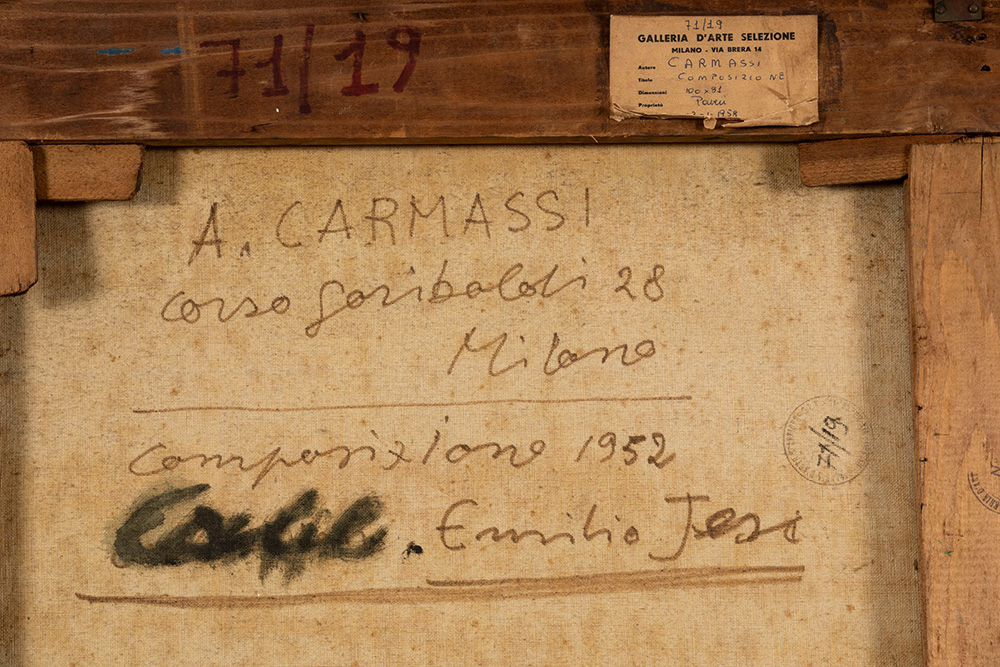 71/19
71/19
GALLERIA D'ARTE SELEZIONE
MILANO - VIA BRERA 14
Autore CARMASSI
Titolo COMPOSIZIONE
Dimensioni 100 x 81
Proprietà
1958
A. CARMASSI
corso Garibaldi 28
Milano
Composizione 1952
71/19
Emilio Jesi